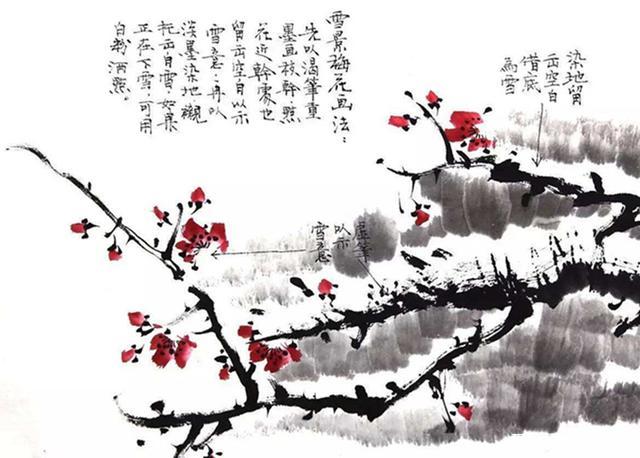 雪景梅花画法：
先以渴筆重
墨画枝幹點
花近幹處也
留出空白以示
雪意；再以
淡墨染地襯
托出白雪，如果
正在下雪，可用
白粉洒點。
染地留
出空白
借底
為雪
虛筆
以示
雪意